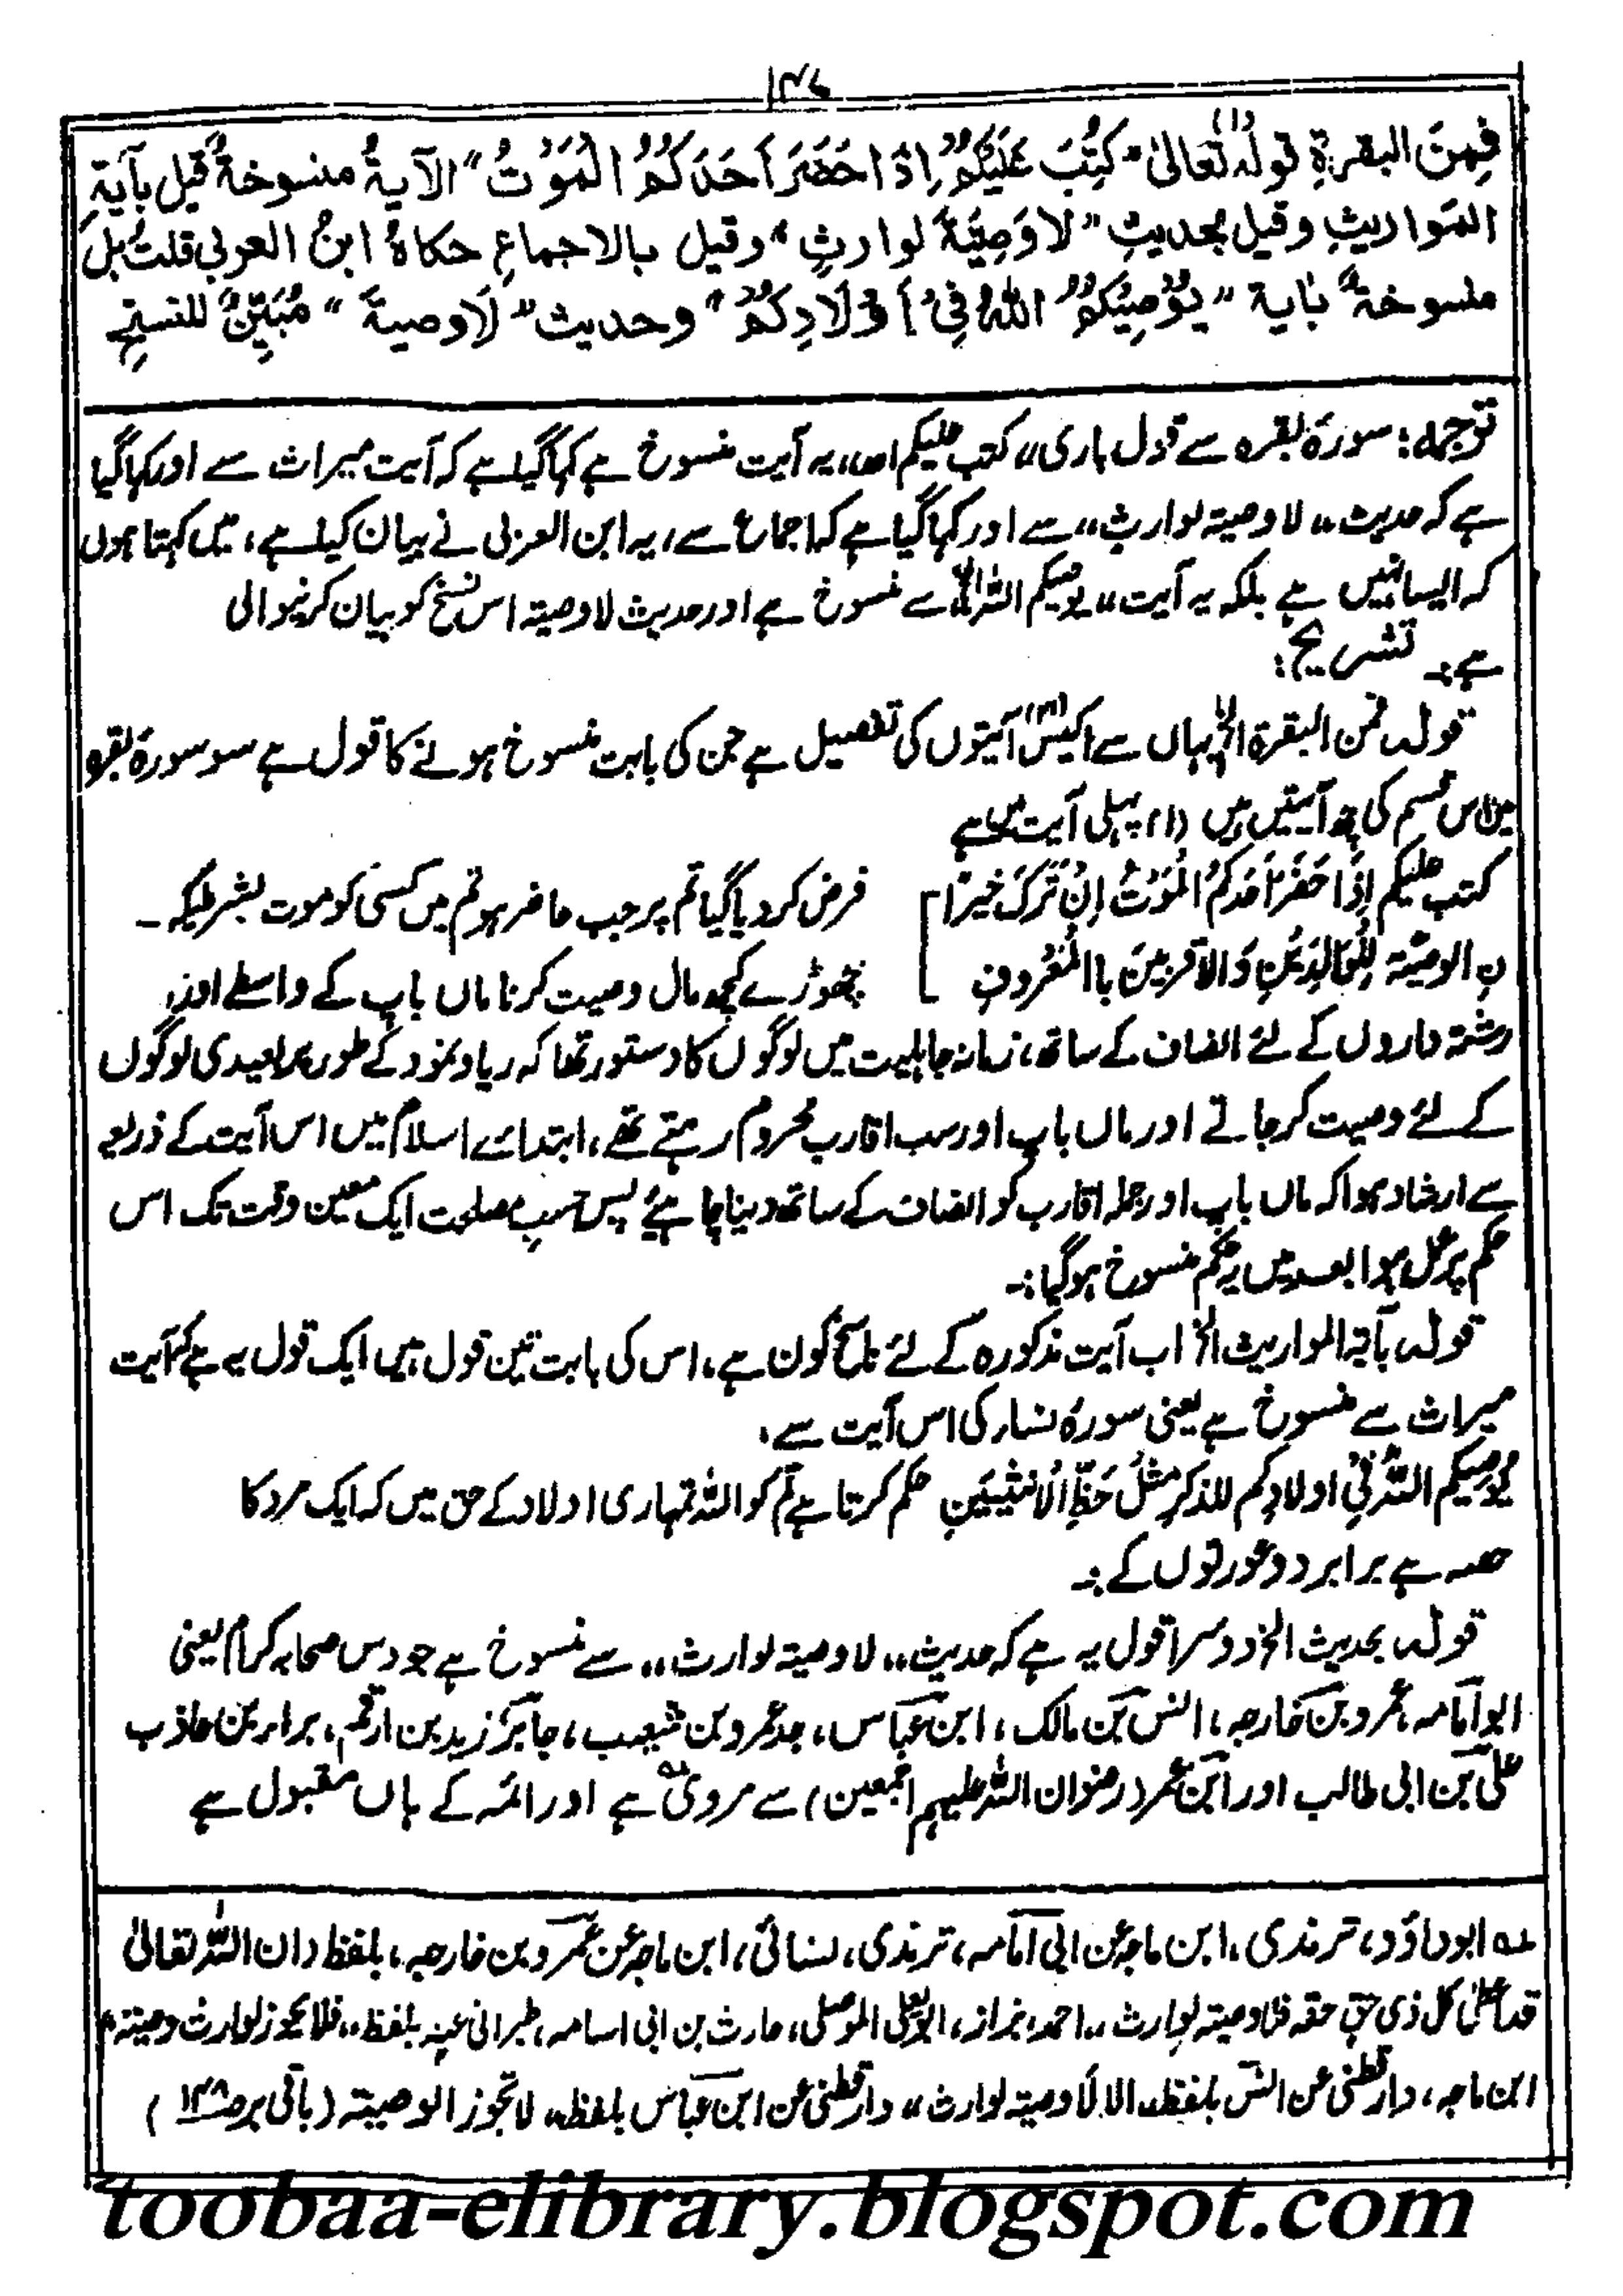 ۱۴۷
فمِنَ البقرةِ قولُہٗ تعالیٰ (۱) "کُتِبَ عَلَیْکُمْ اِذَا حَضَرَ اَحَدَکُمُ الْمَوْتُ" الآیةُ منسوخةٌ قیل بآیَةِ
المَواریثِ وقیل بحدیثِ "لَا وَصِیَّةَ لوارثٍ" وقیل بالاجماعِ حکاہُ ابنُ العربی قلتُ بل
منسوخةٌ بآیة "یُوْصِیْکُمُ اللّٰہُ فِیْ اَوْلَادِکُمْ" وحدیث "لَا وصیةَ" مُبَیِّنٌ للنسخِ
ترجمہ: سورۂ بقرہ سے قول باری ،،کتب علیکم اھ،، یہ آیت منسوخ ہے کہا گیا ہے کہ آیت میراث سے اور کہا گیا
ہے کہ حدیث ،،لا وصیۃ لوارثٍ،، سے اور کہا گیا ہے کہ اجماع سے، یہ ابن العربی نے بیان کیا ہے، میں کہتا ہوں
کہ ایسا نہیں ہے بلکہ یہ آیت ،،یوصیکم اللہ الآیۃ سے منسوخ ہے اور حدیث لا وصیۃ اس نسخ کو بیان کرنیوالی
ہے:۔ تشریح:
قولہ فمن البقرۃ الخ یہاں سے اکیس (۲۱) آیتوں کی تفصیل ہے جن کی بابت منسوخ ہونے کا قول ہے سو سورۂ بقرہ
میں اس قسم کی چھ آیتیں ہیں (۱) پہلی آیت میں ہے
کتب علیکم اِذَا حَضَرَ اَحَدَکُمُ الْمَوْتُ اِنْ تَرَکَ خَیْرًا فرض کر دیا گیا تم پر جب حاضر ہو تم میں کسی کو موت بشرطیکہ ۔
نِ الوَصِیَّۃ لِلْوَالِدَیْنِ وَالاَقْرَبِیْنَ بِاالْمَعْرُوفِ چھوڑے کچھ مال وصیت کرنا ماں باپ کے واسطے اور
رشتہ داروں کے لئے انصاف کے ساتھ، زمانہ جاہلیت میں لوگوں کا دستور تھا کہ ریا و نمود کے طور پر بعیدی لوگوں
کے لئے وصیت کر جاتے اور ماں باپ اور سب اقارب محروم رہتے تھے، ابتدائے اسلام میں اس آیت کے ذریعہ
سے ارشاد ہوا کہ ماں باپ اور جملہ اقارب کو انصاف کے ساتھ دینا چاہیئے پس حسبِ مصلحت ایک معین وقت تک اس
حکم پر عمل ہوا بعد میں یہ حکم منسوخ ہوگیا:۔
قولہ بآیۃ المواریث الخ اب آیت مذکورہ کے لئے ناسخ کون ہے، اس کی بابت تین قول ہیں ایک قول یہ ہے کہ آیت
میراث سے منسوخ ہے یعنی سورۂ نساء کی اس آیت سے،
یُوصیکم اللّٰہُ فِیْ اولادِکم للذکرِ مثلُ حَظِّ الْاُنثَیَینِ حکم کرتا ہے تم کو اللہ تمہاری اولاد کے حق میں کہ ایک مرد کا
حصہ ہے برابر دو عورتوں کے:۔
قولہ بحدیث الخ دوسرا قول یہ ہے کہ حدیث ،،لا وصیۃ لوارث،، سے منسوخ ہے جو دس صحابہ کرام یعنی
ابو امامہ، عمرو بن خارجہ، انس بن مالک، ابن عباس، جد عمرو بن شعیب، جابر، زید بن ارقم، براء بن عاذب
علی بن ابی طالب اور ابن عمر (رضوان اللہ علیہم اجمعین) سے مروی ہے اور ائمہ کے ہاں مقبول ہے
ـلہ ابوداؤد، ترمذی، ابن ماجہ عن ابی امامہ، ترمذی، نسائی، ابن ماجہ عن عمرو بن خارجہ، بلفظ ،،ان اللہ تعالیٰ
قد اعطیٰ کل ذی حقٍ حقہ فلا وصیۃ لوارث،، احمد، بزاز، ابو یعلی الموصلی، حارث بن ابی اسامہ، طبرانی عنہ بلفظ ،،فلا یجوز لوارث وصیۃ،،
ابن ماجہ، دار قطنی عن انس بلفظ ،،الا لا وصیۃ لوارث،، دار قطنی عن ابن عباس بلفظ ،،لا تجوز الوصیۃ (باقی بر ص ۱۴۸)
toobaa-elibrary.blogspot.com